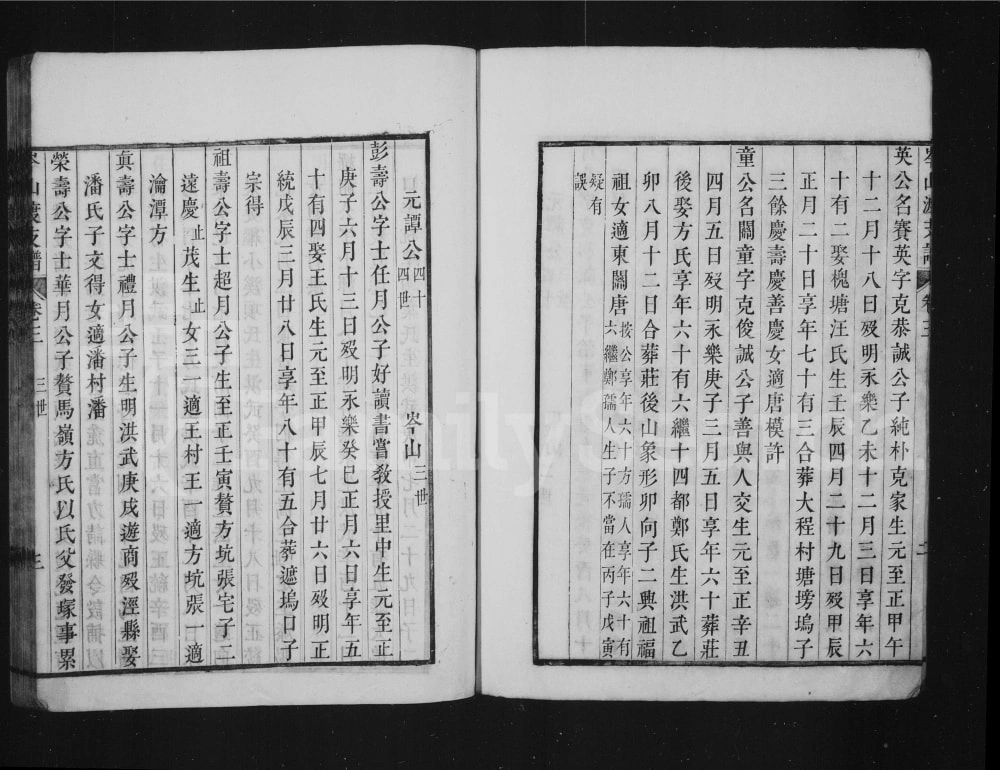 岑山渡支譜 卷三 二
英公名賽英字克恭誠公子純朴克家生元至正甲午
十二月十八日歿明永樂乙未十二月三日享年六
十有二娶槐塘汪氏生壬辰四月二十九日歿甲辰
正月二十日享年七十有三合葬大程村塘塝塢子
三餘慶壽慶善慶女適唐模許
童公名關童字克俊誠公子善與人交生元至正辛丑
四月五日歿明永樂庚子三月五日享年六十葬莊
後娶方氏享年六十有六繼十四都鄭氏生洪武乙
卯八月十二日合葬莊後山象形卯向子二興祖福
祖女適東關唐按公享年六十方孺人享年六十有
六繼鄭孺人生子不當在丙子戊寅
疑有
誤
元譚公四十
四世 岑山三世
彭壽公字士任月公子好讀書嘗教授里中生元至正
庚子六月十三日歿明永樂癸巳正月六日享年五
十有四娶王氏生元至正甲辰七月廿六日歿明正
統戊辰三月廿八日享年八十有五合葬遮塢口子
宗得
祖壽公字士超月公子生至正壬寅贅方坑張宅子二
遠慶止茂生止女三一適王村王一適方坑張一適
瀹潭方
真壽公字士禮月公子生明洪武庚戌遊商歿涇縣娶
潘氏子文得女適潘村潘
榮壽公字士華月公子贅馬嶺方氏以氏父發塚事累
岑山渡支譜 卷三 三世